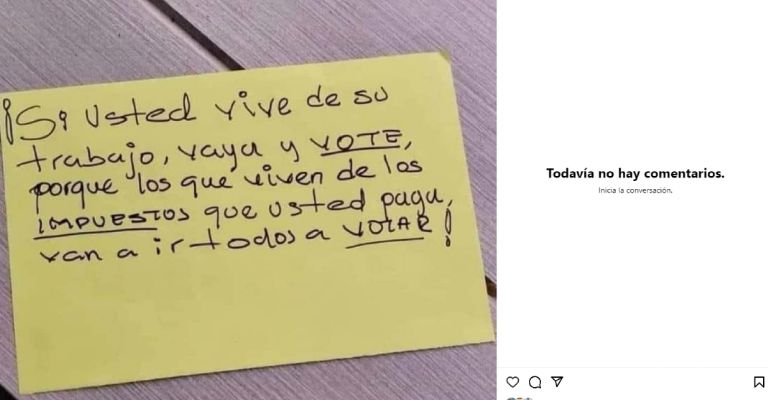 ¡Si usted vive de su
trabajo, vaya y VOTE,
porque los que viven de los
IMPUESTOS que usted paga,
van a ir todos a VOTAR!
Todavía no hay comentarios.
Inicia la conversación.